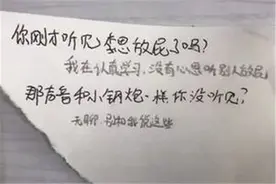 你刚才听见李想放屁了吗?
我在认真学习,没有心思听别人放屁
那声音和小钢炮一样你没听见?
无聊,别和我说这些